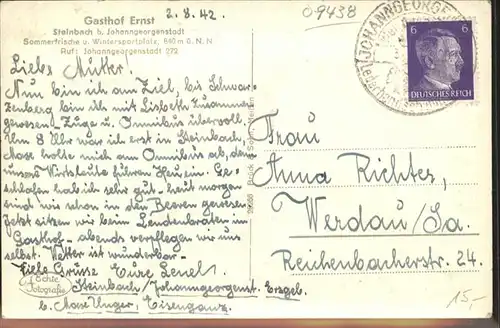 Gasthof Ernst
2. 8. 42.
09438
Steinbach b. Johanngeorgenstadt
Sommerfrische u. Wintersportplatz, 890 m ü. N. N
Ruf: Johanngeorgenstadt 272
JOHANNGEORGEN
6 6
DEUTSCHES REICH
Liebe Mutter!
Nun bin ich am Ziel, bis Schwar-
zenberg bin ich mit Lisbeth zusammen
gewesen. Zuge u. Omnibus übervoll.
Um 8 Uhr war ich erst in Steinbach,
Mase holte mich am Omnibus ab, denn
unsre Wirtsleute führen Heu ein. Ge-
schlafen hab ich sehr gut - heut morgen
sind wir schon in den Beeren gewesen
Jetzt sitzen wir beim Lendenbraten im
Gasthof - abends verpflegen wir uns
selbst. Wetter ist wunderbar -
Viele Grüsse Eure
Steinbach / Johanngeorgenst. Erzgeb.
b. Mase Unger,
Echte Fotografie
Frau
Anna Richter,
Werdau/Sa.
Reichenbacherstr. 24.
15,-